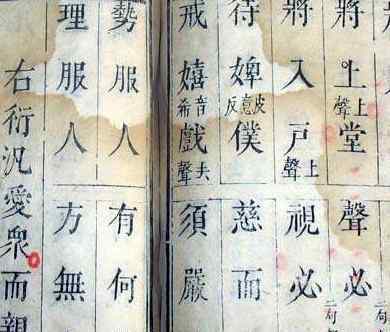 將上上聲堂 聲必二句
將入戶上聲 視必二句
待婢皮意反僕 慈而
戒嬉音希戲去聲 須嚴
勢服人 有何
理服人 方無
右衍汎愛衆而親